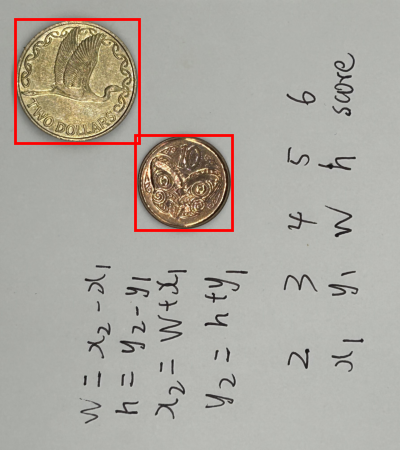 TWO DOLLARS
10
w = x2 - x1
h = y2 - y1
x2 = w + x1
y2 = h + y1
2 3 4 5 6
x1 y1 w h score